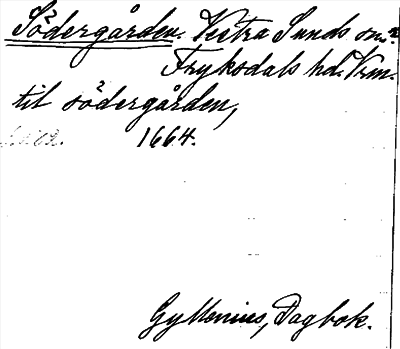 Södergården. Vestra Sunds sn.
Fryksdals hd. Vrm.
til södergården,
1664.
Gyllenius, Dagbok.